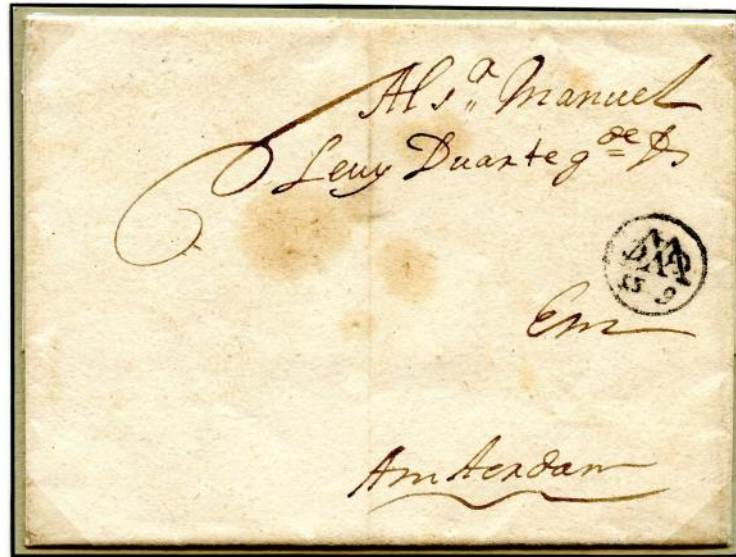 Al s.ʳ Manuel
Levy Duarte g.ᵈᵉ Ds
Em
Amsterdam